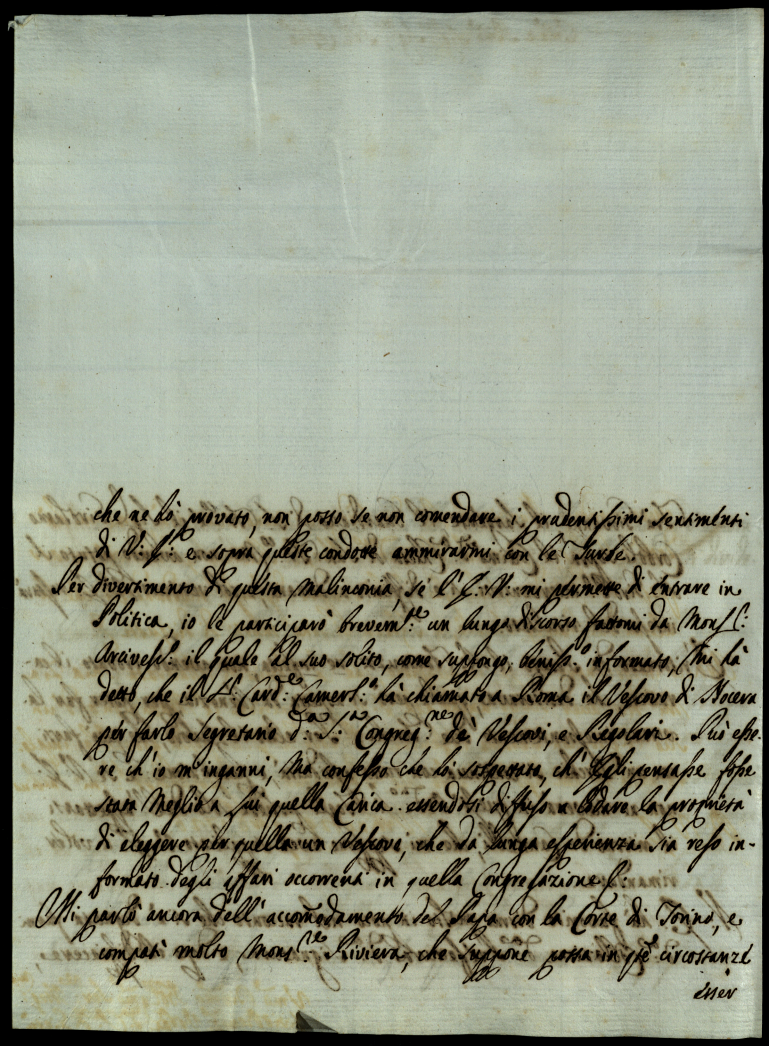 che ne hò provato, non posso se non comendare i prudentissimi sentimenti
di V: S: e sopra queste condotte ammirarmi con le
Per divertimento di questa malinconia, se l' S: V: mi permette di entrare in
Politica, io le participarò brevem:te un lungo discorso fattomi da Mons:
Arcivesc: il quale al suo solito, come suppongo, beniss:o informato, mi hà
detto, che il S: Card:e Camerl:o hà chiamato a Roma il Vescovo di Nocera
per farlo Segretario d:a S:a Congreg:ne de' Vescovi, e Regolari. Può esse-
re ch' io m' inganni, ma confesso che hò sospettato, ch' Egli pensasse fosse
stata meglio a lui quella Carica essendosi diffuso a lodare la proprietà
di eleggere per quella un Vescovo, che da lunga esperienza sia reso in-
formato degli affari occorrenti in quella Congregazione
Mi parlò ancora dell' accomodamento del Papa con la Corte di Torino, e
compatì molto Mons:re Riviera, che suppone possa in qste circostanze
esser